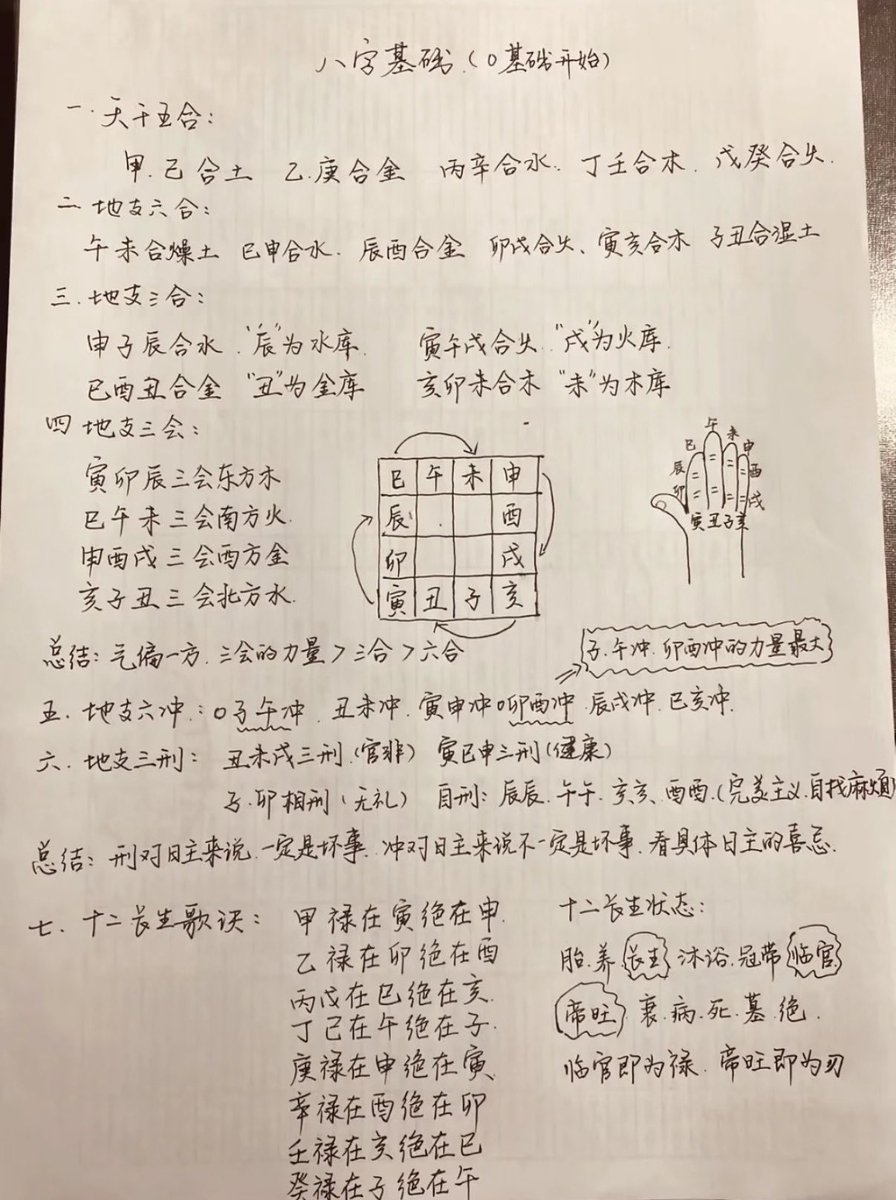 八字基础.(0基础开始)
一.天干五合:
甲.己合土 乙.庚合金 丙辛合水. 丁壬合木. 戊癸合火.
二 地支六合:
午未合燥土 巳申合水. 辰酉合金 卯戌合火、寅亥合木 子丑合湿土
三.地支三合:
申子辰合水."辰"为水库. 寅午戌合火."戌"为火库.
巳酉丑合金 "丑"为金库 亥卯未合木 "未"为木库
四 地支三会:
寅卯辰三会东方木
巳午未三会南方火.
申酉戌三会西方金
亥子丑三会北方水.
巳 午 未 申
辰 酉
卯 戌
寅 丑 子 亥
午
巳 未 申
辰 酉
卯 戌
寅丑子亥
总结:气偏一方.三会的力量>三合>六合
子.午冲.卯酉冲的力量最大
五.地支六冲:子午冲.丑未冲.寅申冲 卯酉冲.辰戌冲.巳亥冲.
六.地支三刑: 丑未戌三刑.(官非) 寅巳申三刑(健康)
子.卯相刑(无礼) 自刑:辰辰.午午.亥亥、酉酉.(完美主义.自找麻烦)
总结:刑对日主来说.一定是坏事.冲对日主来说不一定是坏事.看具体日主的喜忌.
七.十二长生歌诀: 甲禄在寅绝在申.
乙禄在卯绝在酉
丙戊在巳绝在亥.
丁己在午绝在子.
庚禄在申绝在寅.
辛禄在酉绝在卯
壬禄在亥绝在巳
癸禄在子绝在午
十二长生状态:
胎.养 长生 沐浴.冠带 临官
帝旺 衰.病.死.墓.绝.
临官即为禄.帝旺即为刃